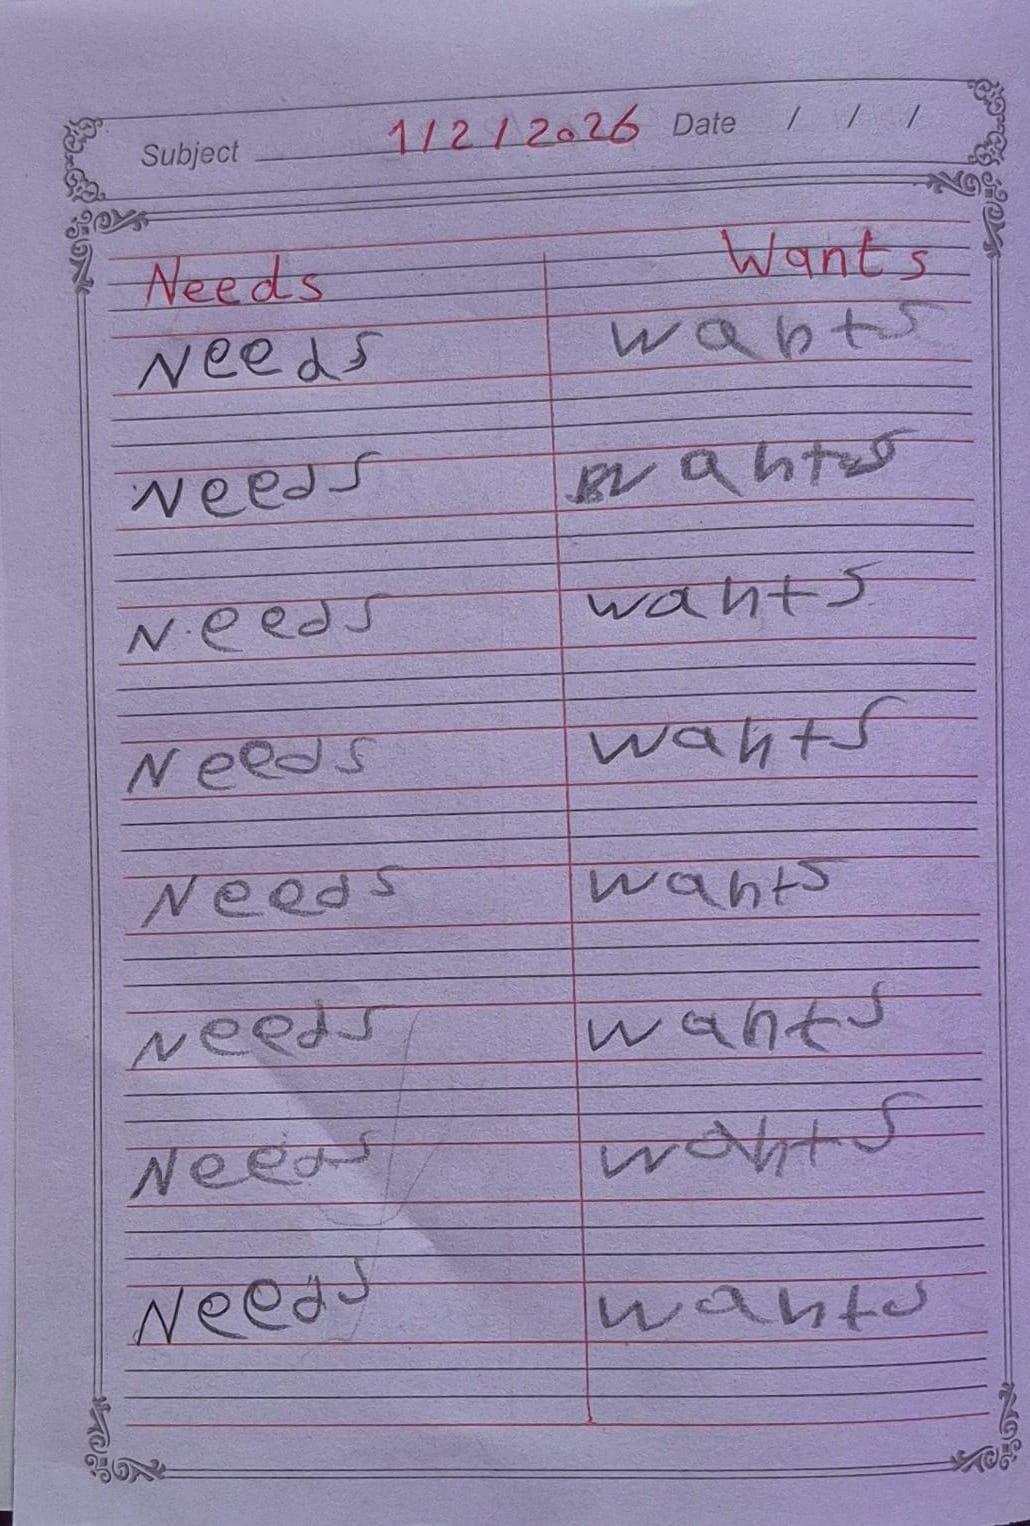 Subject 1/2/2026 Date / / /
Needs Wants
Needs wants
Needs wants
Needs wants
Needs wants
Needs wants
Needs wants
Needs wants
Needs wants